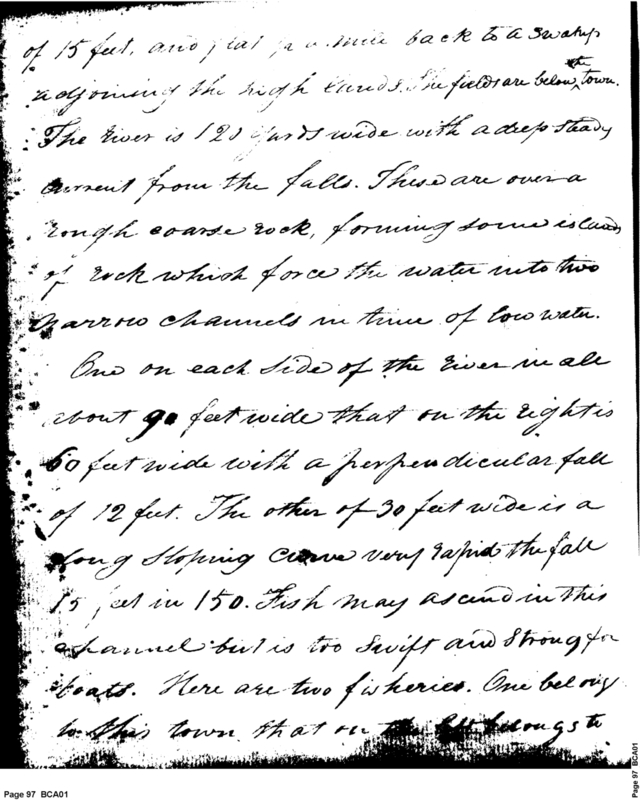 of 15 feet, and flat for a mile back to a swamp
adjoining the high lands. The fields are below the town.
The River is 120 yards wide with a deep steady
current from the falls. These are over a
rough coarse rock, forming some islands
of rock which force the water into two
narrow channels in time of low water.
One on each side of the River in all
about 90 feet wide that on the right is
60 feet wide with a perpendicular fall
of 12 feet. The other of 30 feet wide is a
long sloping curve very rapid the fall
15 feet in 150. Fish may ascend in this
channel but is too swift and strong for
boats. Here are two fisheries. One belong
to this town that on the left belongs to
Page 97 BCA01
Page 97 BCA01